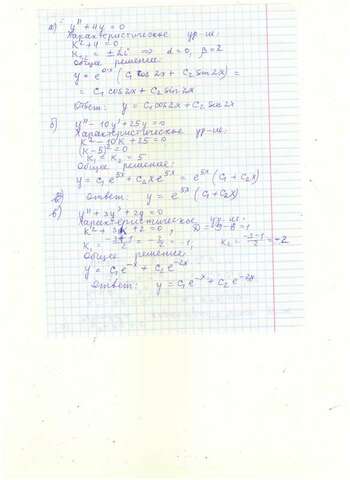 а) y'' + 4y = 0
Характеристическое ур-ие:
k² + 4 = 0
k₁,₂ = ± 2i ⇒ α = 0, β = 2
Общее решение:
y = e^{0·x} (C₁ cos 2x + C₂ sin 2x) =
= C₁ cos 2x + C₂ sin 2x
Ответ: y = C₁ cos 2x + C₂ sin 2x
б) y'' − 10y' + 25y = 0
Характеристическое ур-ие:
k² − 10k + 25 = 0
(k − 5)² = 0
k₁ = k₂ = 5
Общее решение:
y = C₁ e^{5x} + C₂ x e^{5x} = e^{5x} (C₁ + C₂ x)
Ответ: y = e^{5x} (C₁ + C₂ x)
в) y'' + 3y' + 2y = 0
Характеристическое ур-ие:
k² + 3k + 2 = 0, D = 9 − 8 = 1
k₁ = (−3+1)/2 = −2/2 = −1, k₂ = (−3−1)/2 = −2
Общее решение
y = C₁ e^{−x} + C₂ e^{−2x}
Ответ: y = C₁ e^{−x} + C₂ e^{−2x}